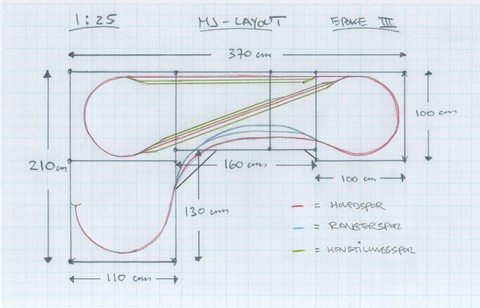 1:25 MJ-LAYOUT EPOKE III
370 cm
210 cm
100 cm
160 cm
100 cm
130 cm
110 cm
= HOVEDSPOR
= RANGERSPOR
= HENSTILLINGSSPOR